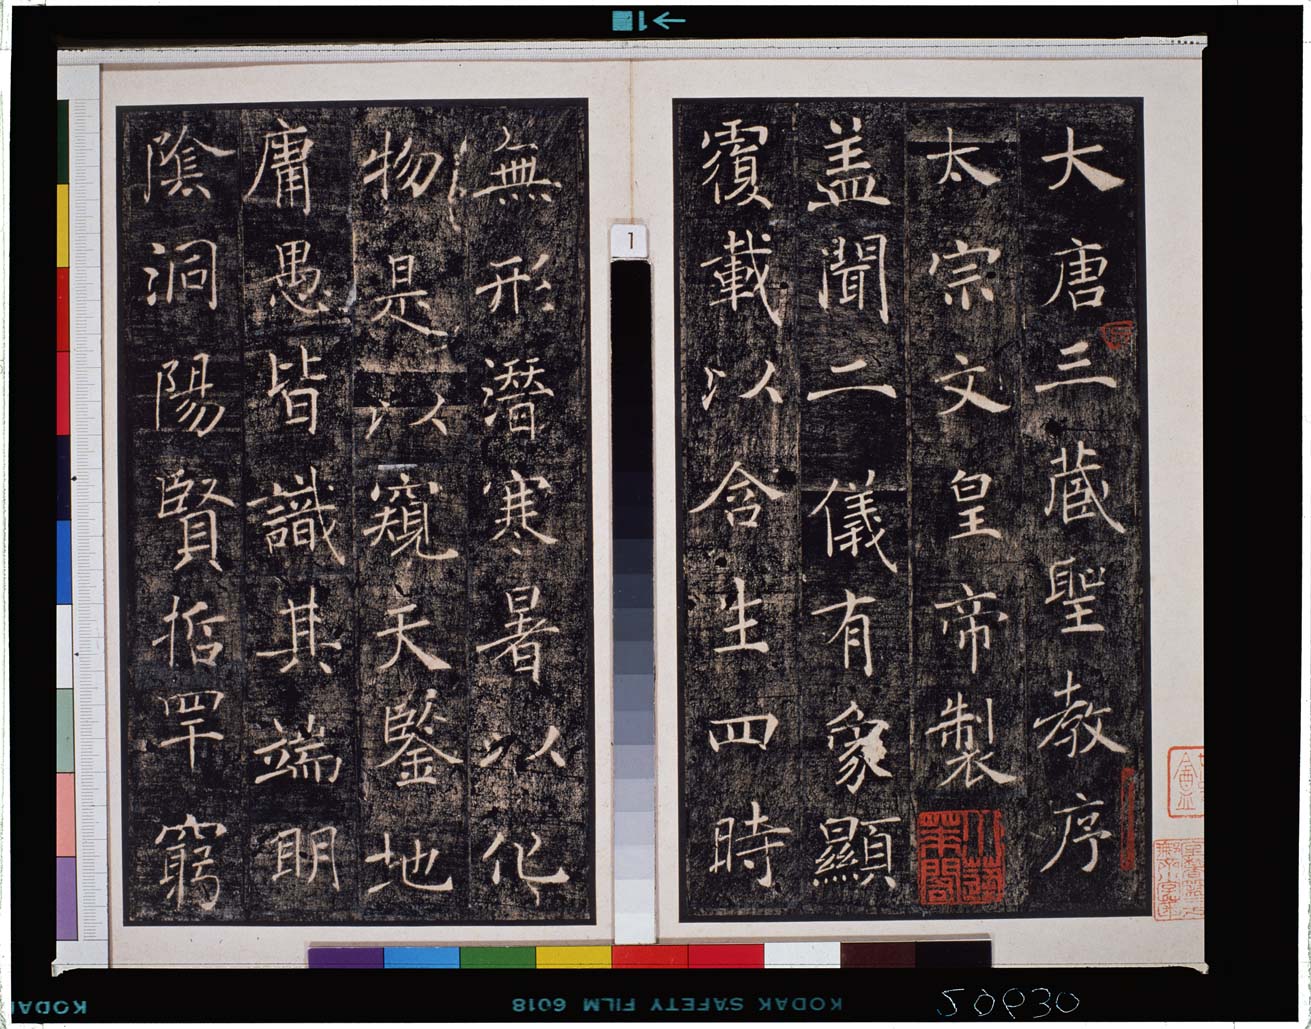 大唐三藏聖教序
太宗文皇帝製
盖聞二儀有象顯
覆載以含生四時
無形潛寒暑以化
物是以窺天鑒地
庸愚皆識其端明
陰洞陽賢哲罕窮
1
KODAK SAFETY FILM 6018
KODAK